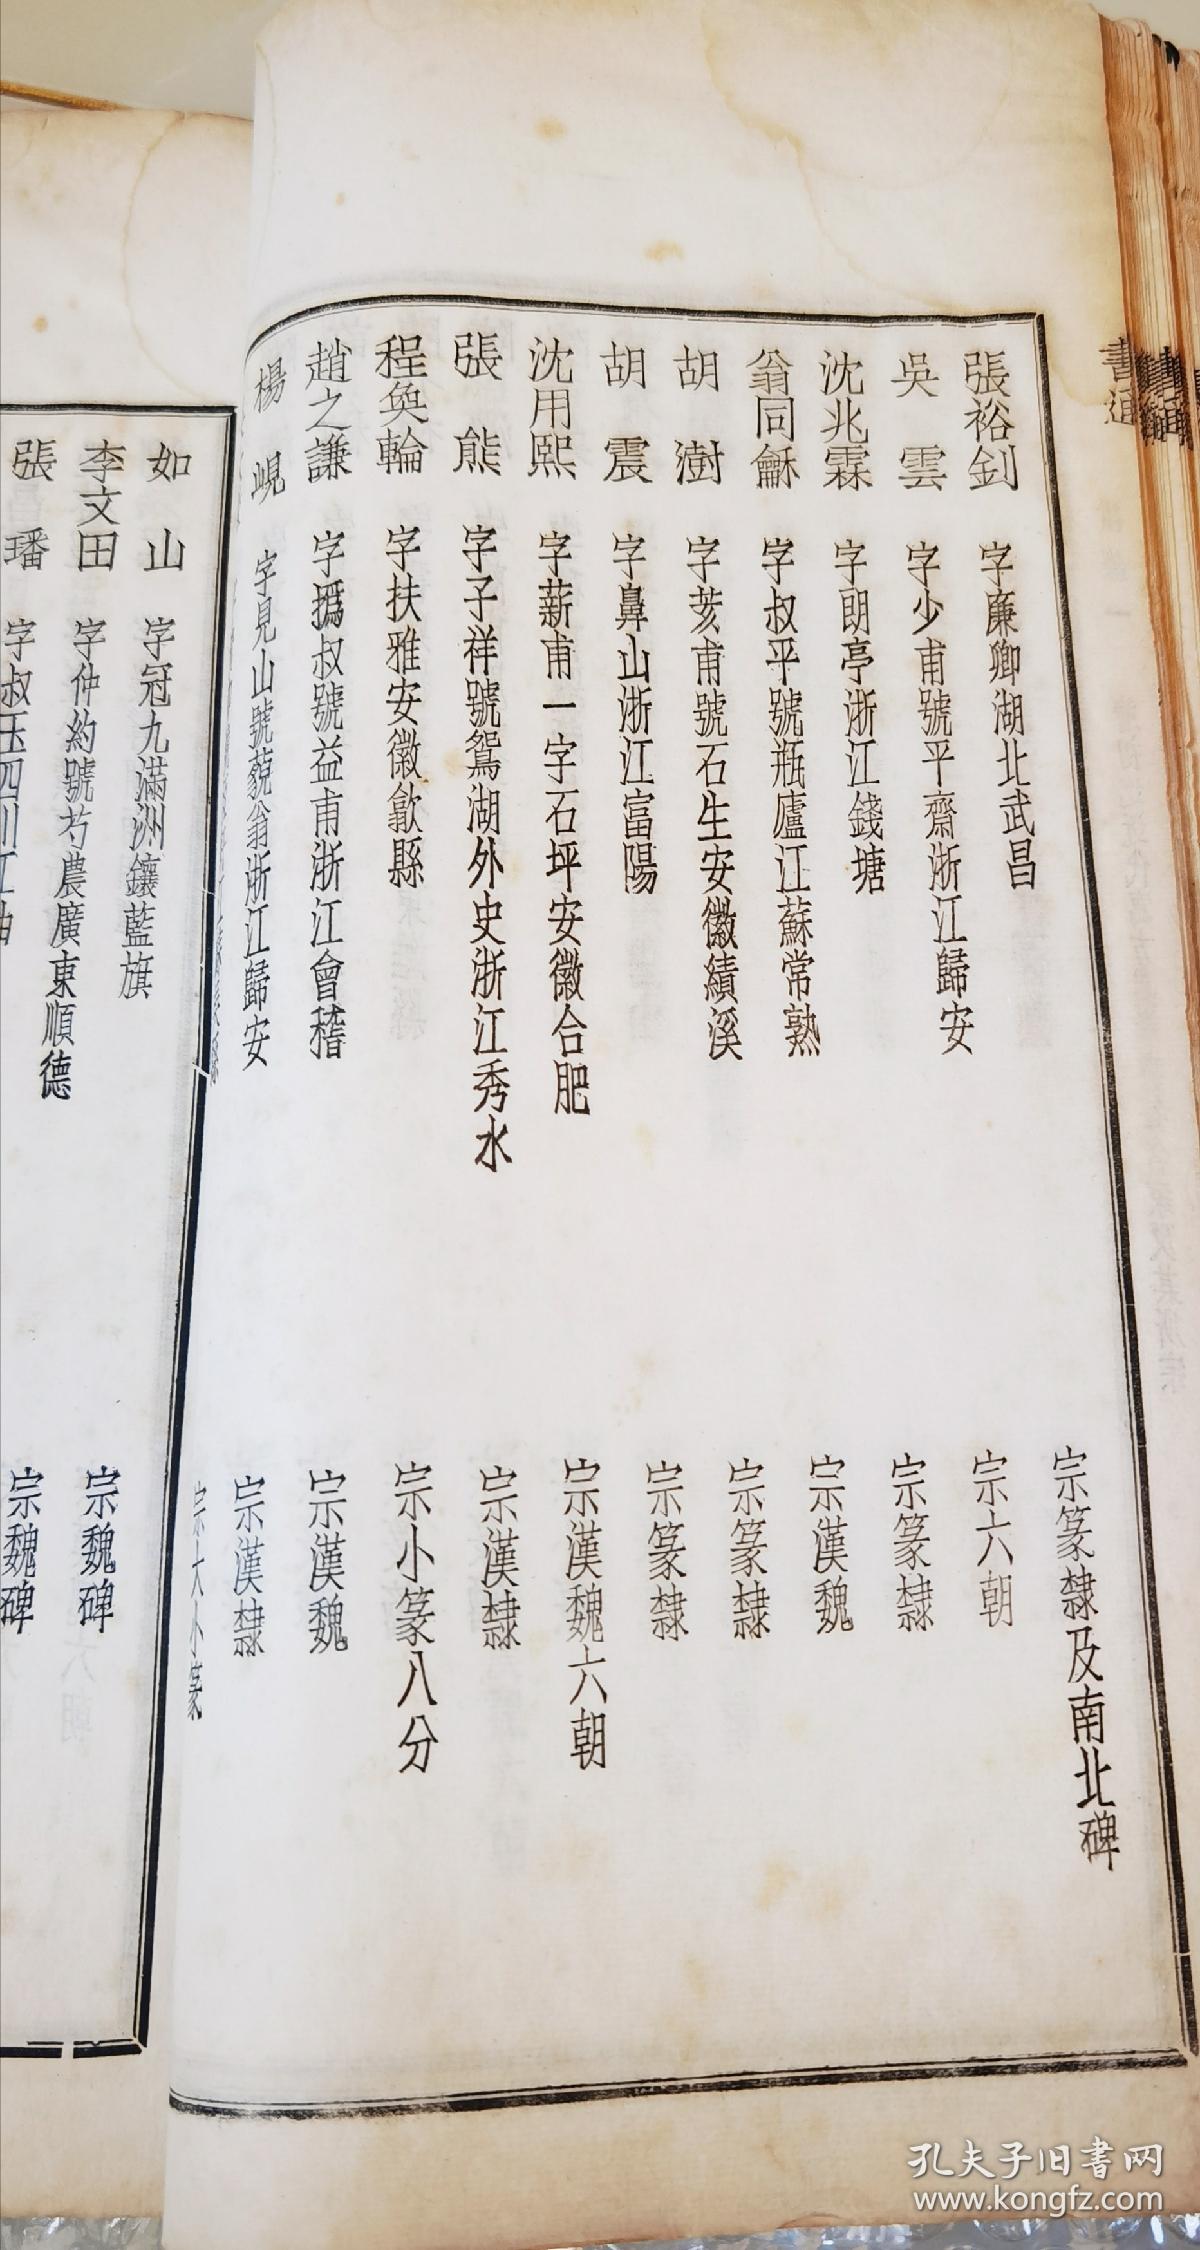 書通
張裕釗 字廉卿湖北武昌 宗篆隸及南北碑
吳雲 字少甫號平齋浙江歸安 宗六朝
沈兆霖 字朗亭浙江錢塘 宗篆隸
翁同龢 字叔平號瓶廬江蘇常熟 宗漢魏
胡澍 字荄甫號石生安徽績溪 宗篆隸
胡震 字鼻山浙江富陽 宗篆隸
沈用熙 字薪甫一字石坪安徽合肥 宗漢魏六朝
張熊 字子祥號鴛湖外史浙江秀水 宗漢隸
程奐輪 字扶雅安徽歙縣 宗小篆八分
趙之謙 字撝叔號益甫浙江會稽 宗漢魏
楊峴 字見山號藐翁浙江歸安 宗漢隸
宗大小篆
如山 字冠九滿洲鑲藍旗 宗魏碑
李文田 字仲約號芍農廣東順德 宗魏碑
張璠 字叔玉四川江
孔夫子旧书网
www.kongfz.com